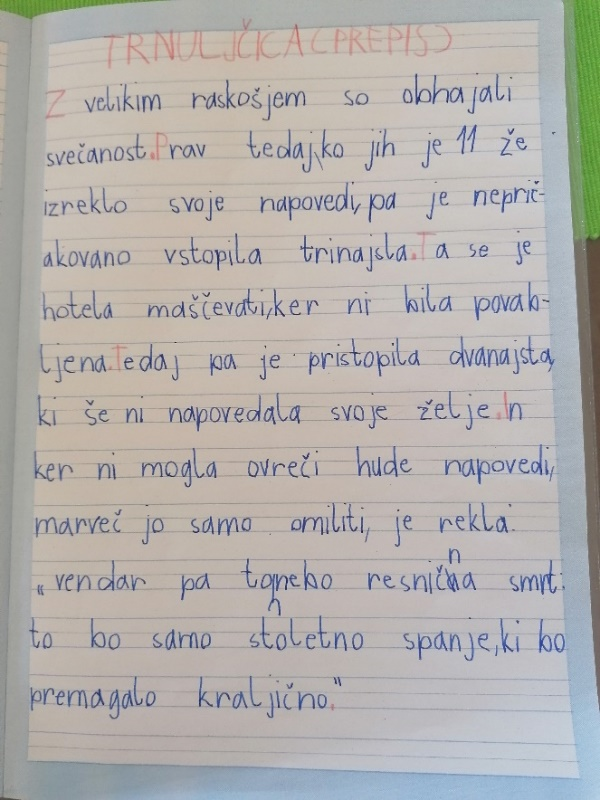 TRNULJČICA (PREPIS)
Z velikim raskošjem so obhajali
svečanost. Prav tedaj, ko jih je 11 že
izreklo svoje napovedi, pa je neprič-
akovano vstopila trinajsta. Ta se je
hotela maščevati, ker ni bila povab-
ljena. Tedaj pa je pristopila dvanajsta,
ki še ni napovedala svoje želje. In
ker ni mogla ovreči hude napovedi,
marveč jo samo omiliti, je rekla:
„vendar pa to ne bo resnična smrt:
to bo samo stoletno spanje, ki bo
premagalo kraljično."